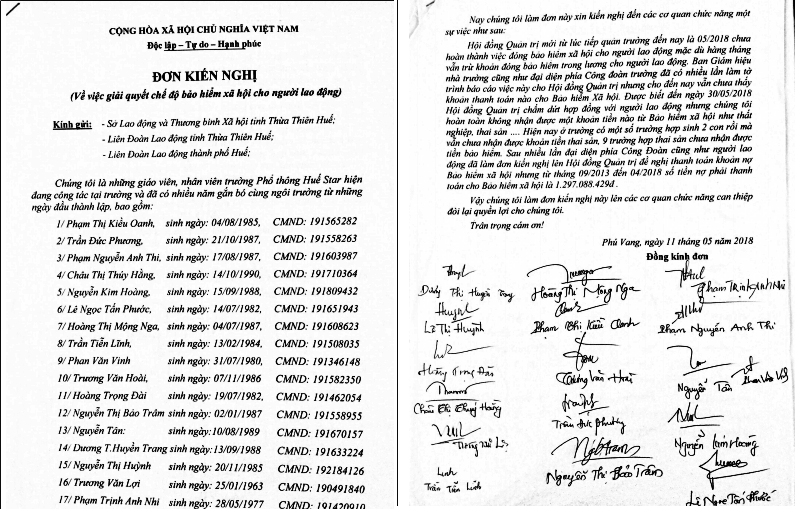 CỘNG HÒA XÃ HỘI CHỦ NGHĨA VIỆT NAM
Độc lập – Tự do – Hạnh phúc
ĐƠN KIẾN NGHỊ
(Về việc giải quyết chế độ bảo hiểm xã hội cho người lao động)
Kính gửi: - Sở Lao động và Thương bình Xã hội tỉnh Thừa Thiên Huế;
- Liên Đoàn Lao động tỉnh Thừa Thiên Huế;
- Liên Đoàn Lao động thành phố Huế;
Chúng tôi là những giáo viên, nhân viên trường Phổ thông Huế Star hiện
đang công tác tại trường và đã có nhiều năm gắn bó cùng ngôi trường từ những
ngày đầu thành lập, bao gồm:
1/ Phạm Thị Kiều Oanh, sinh ngày: 04/08/1985, CMND: 191565282
2/ Trần Đức Phương, sinh ngày: 21/10/1987, CMND: 191558263
3/ Phạm Nguyễn Anh Thi, sinh ngày: 17/08/1987, CMND: 191603987
4/ Châu Thị Thúy Hằng, sinh ngày: 14/10/1990, CMND: 191710364
5/ Nguyễn Kim Hoàng, sinh ngày: 15/09/1988, CMND: 191809432
6/ Lê Ngọc Tấn Phước, sinh ngày: 14/07/1982, CMND: 191651943
7/ Hoàng Thị Mộng Nga, sinh ngày: 04/07/1987, CMND: 191608623
8/ Trần Tiễn Lĩnh, sinh ngày: 13/02/1984, CMND: 191508035
9/ Phan Văn Vinh sinh ngày: 31/07/1980, CMND: 191346148
10/ Trương Văn Hoài, sinh ngày: 07/11/1986 CMND: 191582350
11/ Hoàng Trọng Đài sinh ngày: 19/07/1982, CMND: 191462054
12/ Nguyễn Thị Bảo Trâm sinh ngày: 02/01/1987 CMND: 191558955
13/ Nguyễn Tấn: sinh ngày: 10/08/1989 CMND: 191670157
14/ Dương T.Huyền Trang sinh ngày: 13/09/1988 CMND: 191633224
15/ Nguyễn Thị Huỳnh sinh ngày: 20/11/1985 CMND: 192184126
16/ Trương Văn Lợi sinh ngày: 25/01/1963 CMND: 190491840
17/ Phạm Trịnh Anh Nhi sinh ngày: 28/05/1977 CMND: 191420910
Nay chúng tôi làm đơn này xin kiến nghị đến các cơ quan chức năng một
sự việc như sau:
Hội đồng Quản trị mới từ lúc tiếp quản trường đến nay là 05/2018 chưa
hoàn thành việc đóng bảo hiểm cho người lao động mặc dù hàng tháng
vẫn trừ khoản đóng bảo hiểm trong lương cho người lao động. Ban Giám hiệu
nhà trường cũng như đại diện phía Công đoàn trường đã có nhiều lần làm tờ
trình báo cáo việc này cho Hội đồng Quản trị nhưng cho đến nay vẫn chưa thấy
khoản thanh toán nào cho Bảo hiểm Xã hội. Được biết đến ngày 30/05/2018
Hội đồng Quản trị chấm dứt hợp đồng với người lao động nhưng chúng tôi
hoàn toàn không nhận được một khoản tiền nào từ Bảo hiểm Xã hội như thất
nghiệp, thai sản .... Hiện nay ở trường có một số trường hợp sinh 2 con rồi mà
vẫn chưa nhận được khoản tiền thai sản, 9 trường hợp thai sản chưa nhận được
tiền bảo hiểm. Sau nhiều lần đại diện phía Công Đoàn cũng như người lao
động đã làm đơn kiến nghị lên Hội đồng Quản trị đề nghị thanh toán khoản nợ
Bảo hiểm xã hội nhưng từ tháng 09/2013 đến 04/2018 số tiền nợ phải thanh
toán cho Bảo hiểm xã hội là 1.297.088.429đ .
Vậy chúng tôi làm đơn kiến nghị này lên các cơ quan chức năng can thiệp
đòi lại quyền lợi cho chúng tôi.
Trân trọng cám ơn!
Phú Vang, ngày 11 tháng 05 năm 2018
Đồng kính đơn
Dương Thị Huyền Trang Hoàng Thị Mộng Nga Phạm Trịnh Anh Nhi
Thị Huỳnh Phạm Thị Kiều Oanh Phạm Nguyễn Anh Thi
Hoàng Trọng Đài Trương Văn Hoài Nguyễn Tấn Phan Văn Vinh
Châu Thị Thúy Hằng Trần Đức Phương Nguyễn Kim Hoàng
Trương Văn Lợi
Trần Tiễn Lĩnh Nguyễn Thị Bảo Trâm Lê Ngọc Tấn Phước